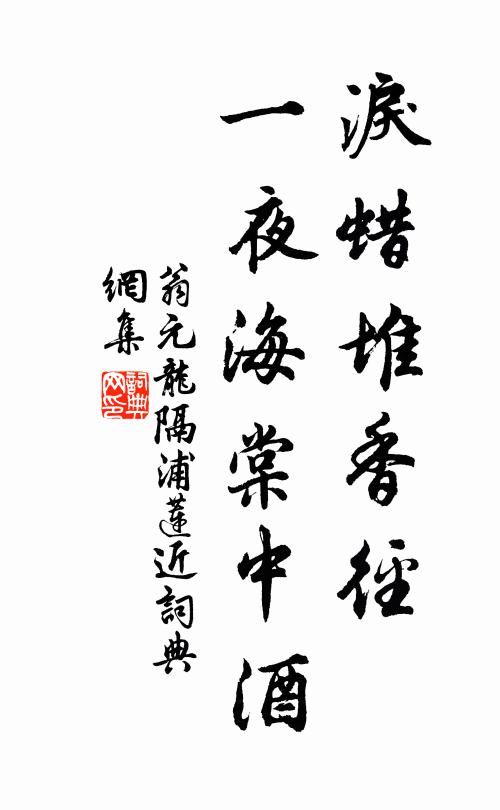 淚蜡堆香徑
一夜海棠中酒
翁元龍隔浦蓮近詞典
網集
詞典
网印